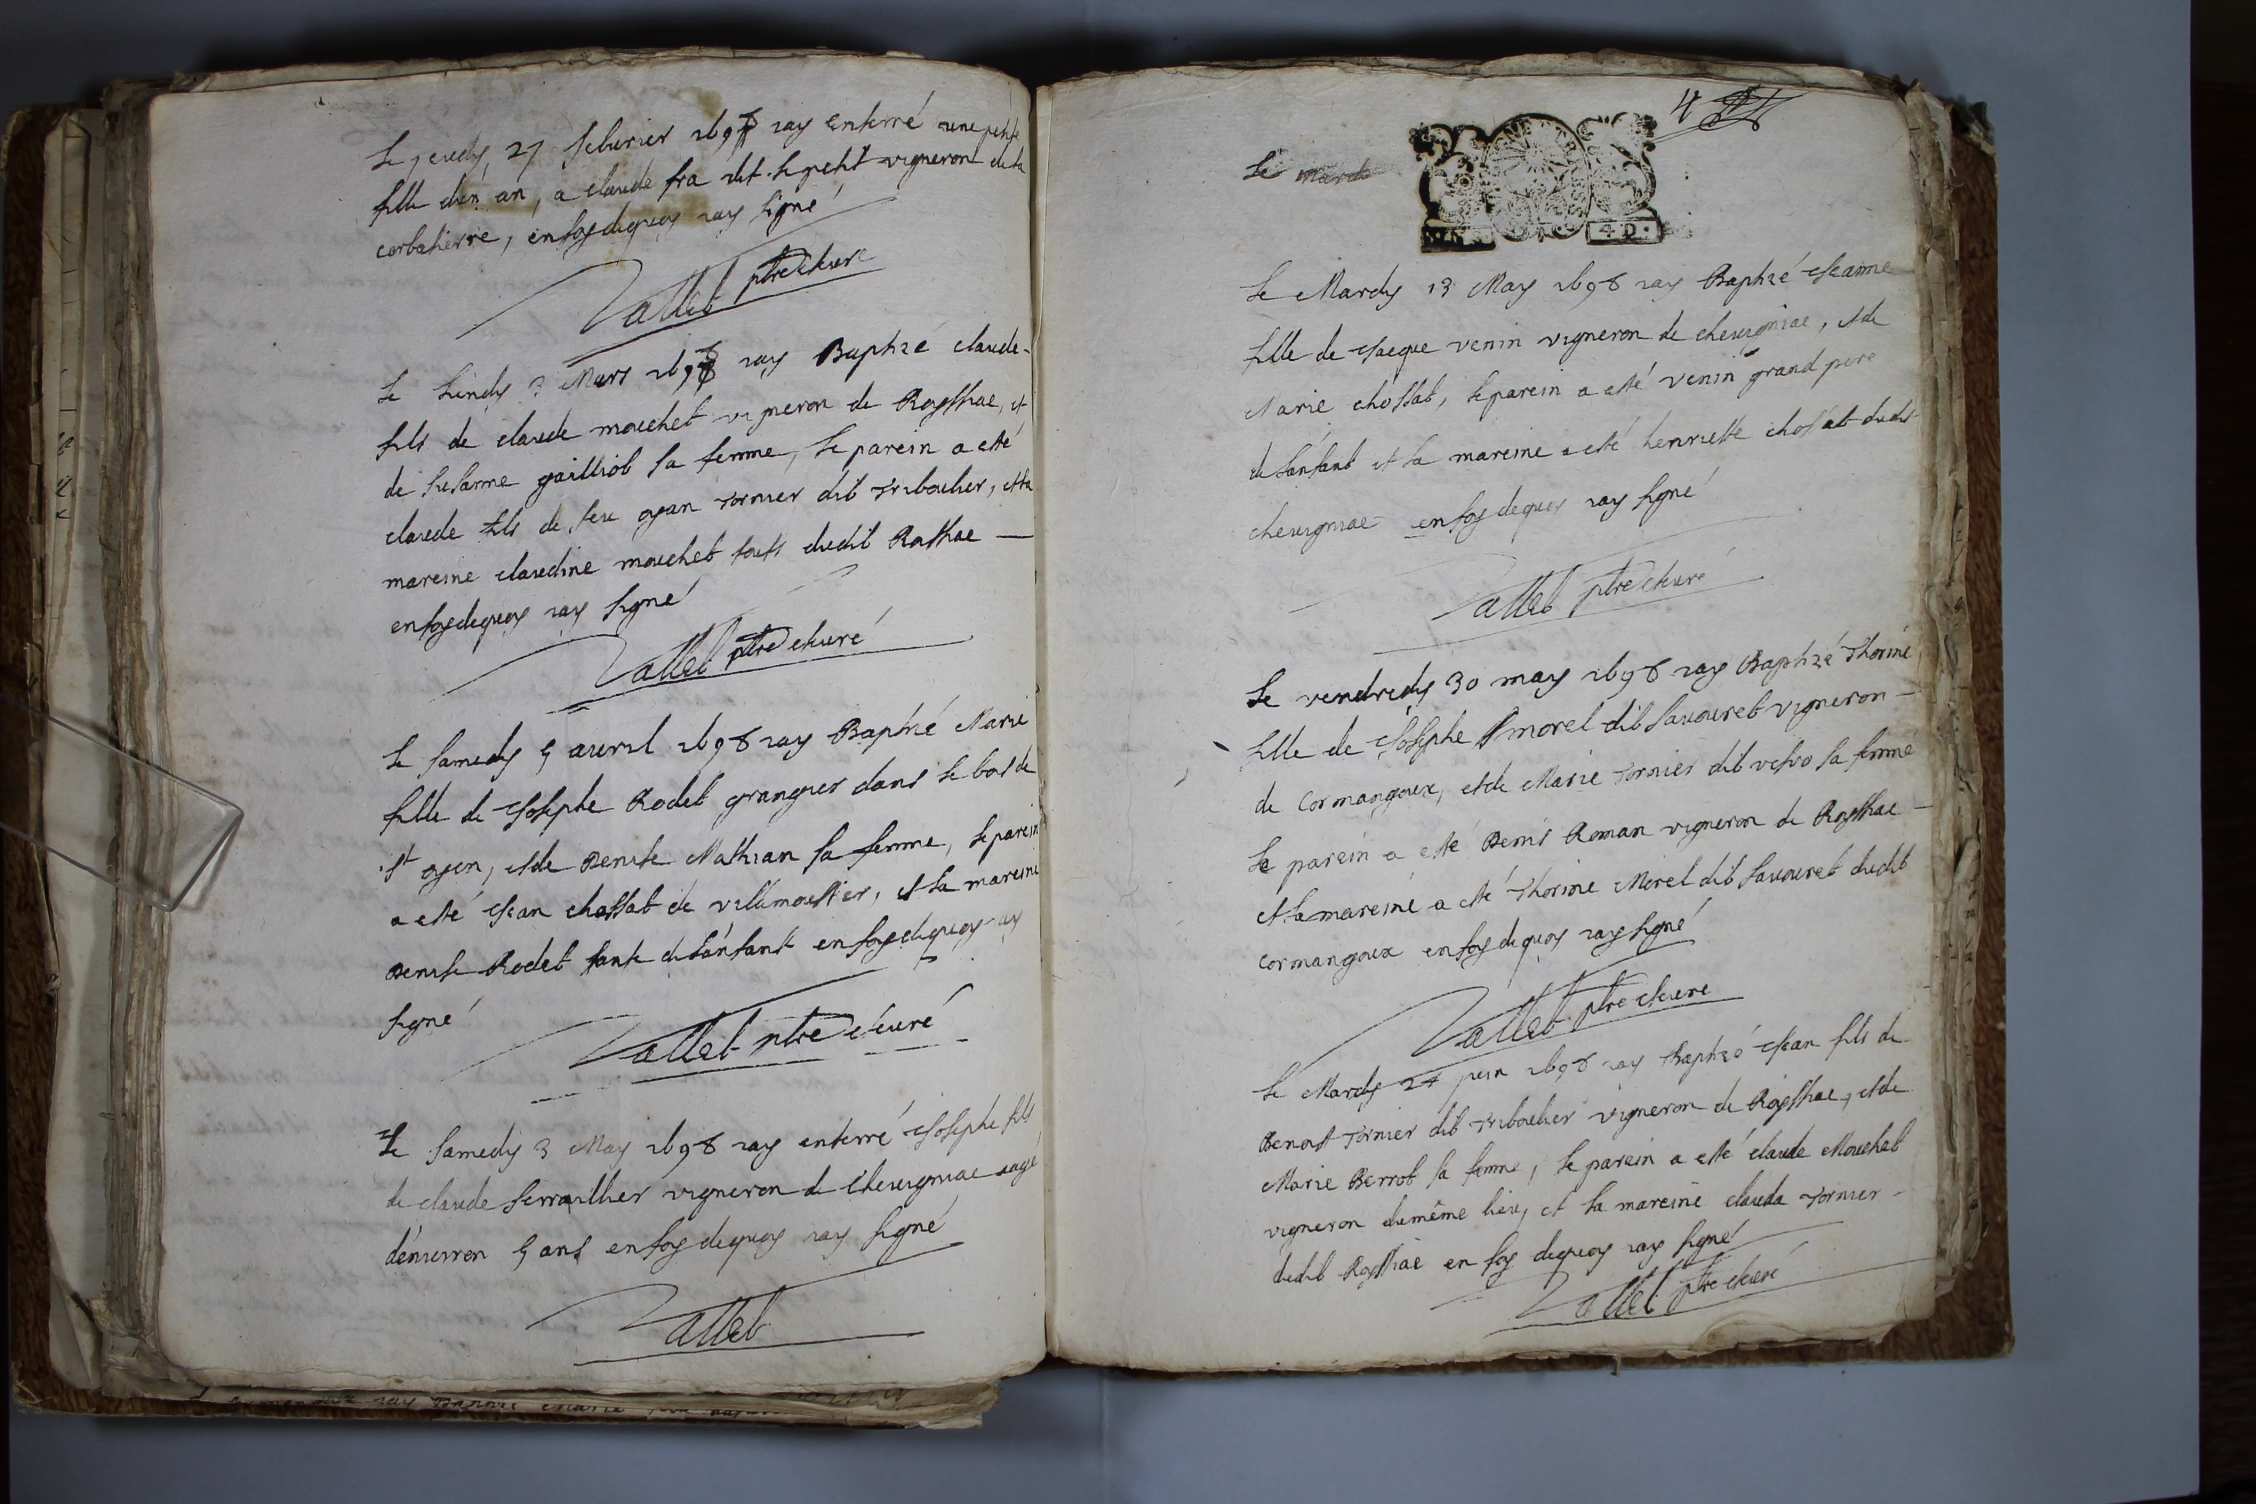 Le jeudy 27 feburier 1698 iay enterré une petite
fille d'un an, a claude fra dit le petit vigneron de la
corbatierre, en foy dequoy iay signé
Vallet ptre curé
Le Lundy 3 Mars 1698 iay Baptizé claude
fils de claude mouchet vigneron de Rossthae, et
de susanne gailliot sa femme, le parein a esté
claude fils de feu oyan tornier dit tribouher, et la
mareine claudine mouchet touts dudit Rosthae
en foy dequoy iay signé
Vallet ptre curé
Le samedy 5 auvril 1698 iay Baptizé Marie
fille de Josephe Rodet granger dans le bois de
st oyen, et de Denise Mathian sa femme, le parein
a esté Jean chossat de villemoustier, et la mareine
Denise Rodet tante de l'anfant en foy dequoy iay
signé
Vallet ptre curé
Le samedy 3 May 1698 iay enterré Josephe fils
de claude serrailher vigneron de Cheurgniae aagé
d'enuirron 5 ans en foy dequoy iay signé
Vallet
4
Le mardi
4 D.
Le Mardy 13 May 1698 iay Baptizé Jeanne
fille de Jacque venin vigneron de cheurgniae, et de
Marie chossat, le parein a esté venin grand pere
de l'anfant et la mareine a esté henriette chossat dudit
cheurgniae en foy dequoy iay signé
Vallet ptre curé
Le vendredy 30 may 1698 iay Baptizé Thorine
fille de Josephe morel dit sauouret vigneron
de Cormangoux, et de Marie tornier dit vesvo sa femme
Le parein a esté Denis Roman vigneron de Rossthae
et la mareine a esté Thorine Morel dit sauouret dudit
cormangoux en foy dequoy iay signé
Vallet ptre curé
Le Mardy 24 juin 1698 iay Baptizé Jean fils de
Benoist tornier dit tribouher vigneron de Rossthae, et de
Marie Berrot sa femme, le parein a esté claude Mouchet
vigneron du même lieu, et la mareine clauda tornier
dudit Rossthae en foy dequoy iay signé
Vallet ptre curé